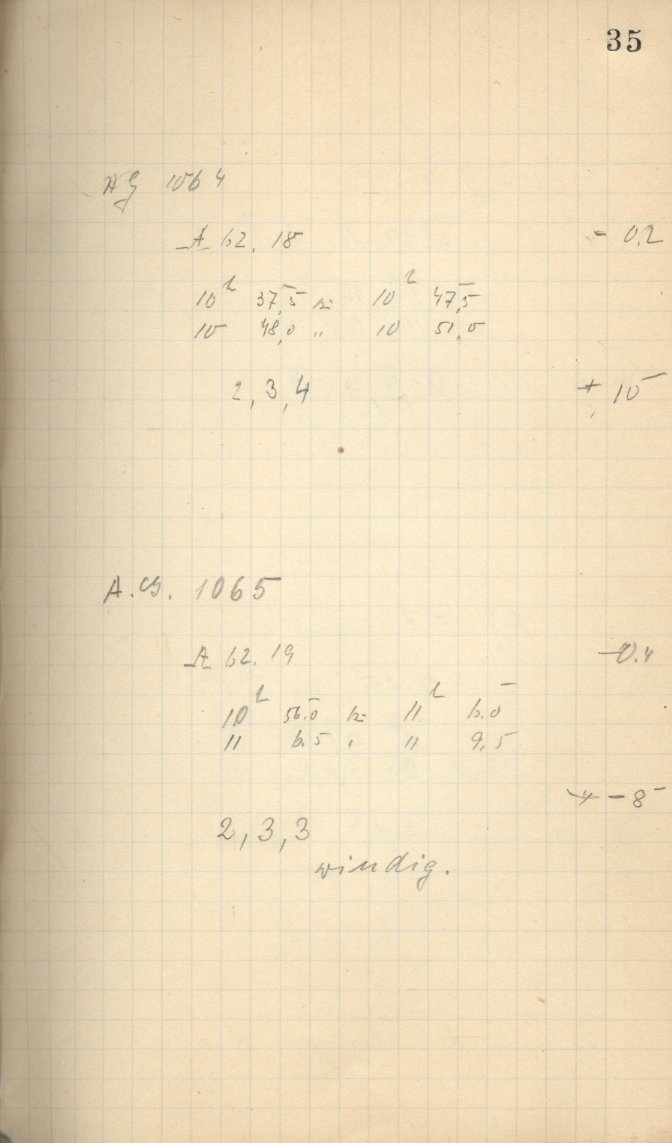 35
AG 1064
A 62. 18 - 0.2
10h 37,5 bis 10h 47,5
10 48,0 " 10 51,0
2, 3, 4 + 10
A.G. 1065
A 62. 19 -0.4
10h 56.0 bis 11h 6.0
11 6.5 " 11 9,5
- 8
2, 3, 3
windig.